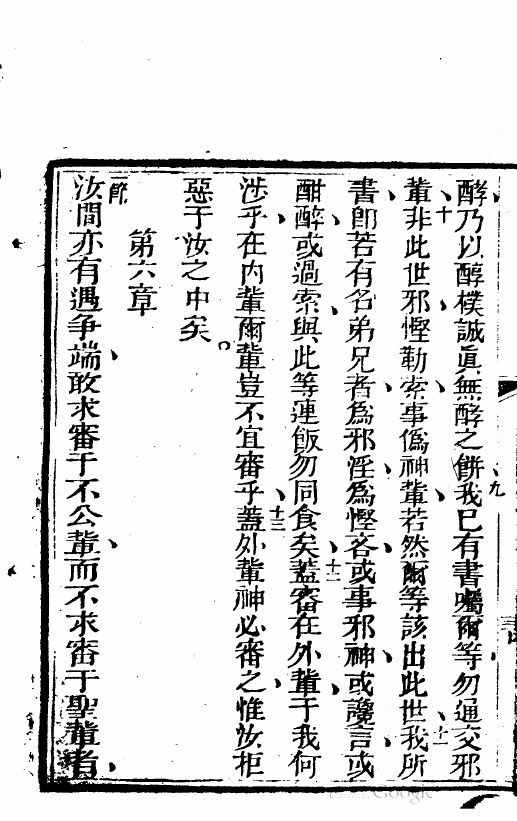 酵乃以醇樸誠眞無酵之餅九我已有書囑爾等勿通交邪
十輩非此世邪慳勒索事僞神輩若然爾等該出此世十一我所
書卽若有名弟兄者爲邪淫爲慳吝或事邪神或讒言或
酣醉或過索與此等連飯勿同食矣十二蓋審在外輩于我何
涉乎在内輩爾輩豈不宜審乎十三蓋外輩神必審之惟汝柜
惡于汝之中矣。
第六章
一節汝間亦有遇爭端敢求審于不公輩而不求審于聖輩者
Google